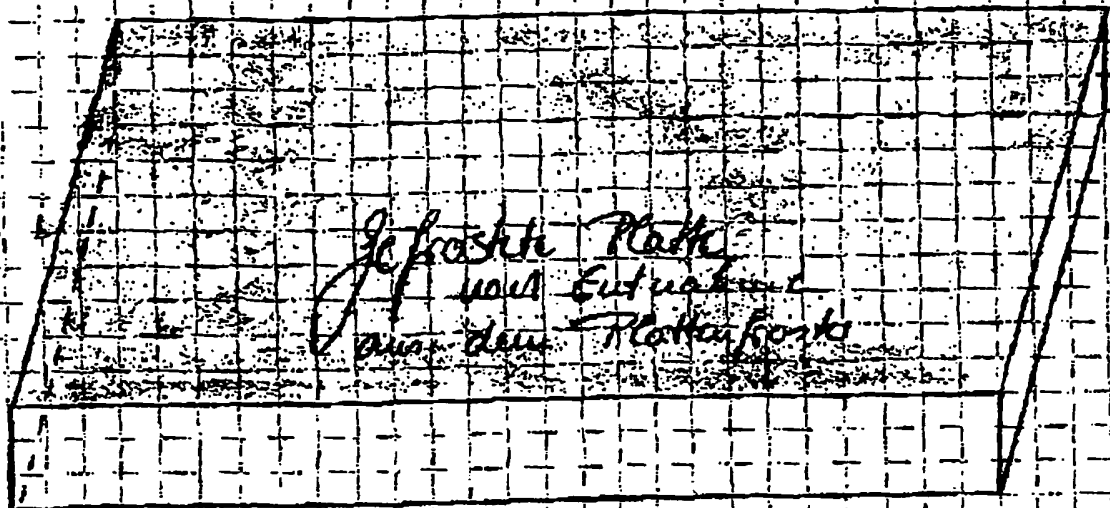 Gefrostete Platte
nach Entnahme
aus dem Plattenfroster